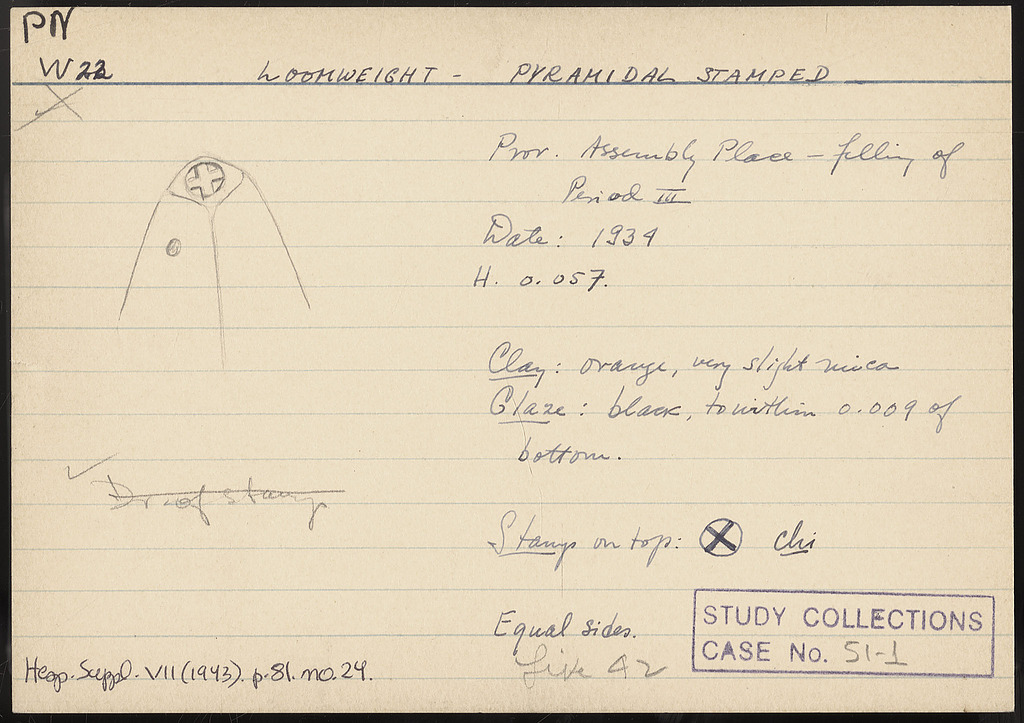 PN
W 22
LOOMWEIGHT - PYRAMIDAL STAMPED
Prov. Assembly Place - filling of
Period III
Date: 1934
H. 0.057.
Clay: orange, very slight mica
Glaze: black, to within 0.009 of
bottom.
Dr. of stamp
Stamp on top: ⊗ chi
Equal sides.
STUDY COLLECTIONS
CASE No. 51-1
Hesp. Suppl. VII (1943). p. 81. no. 24.